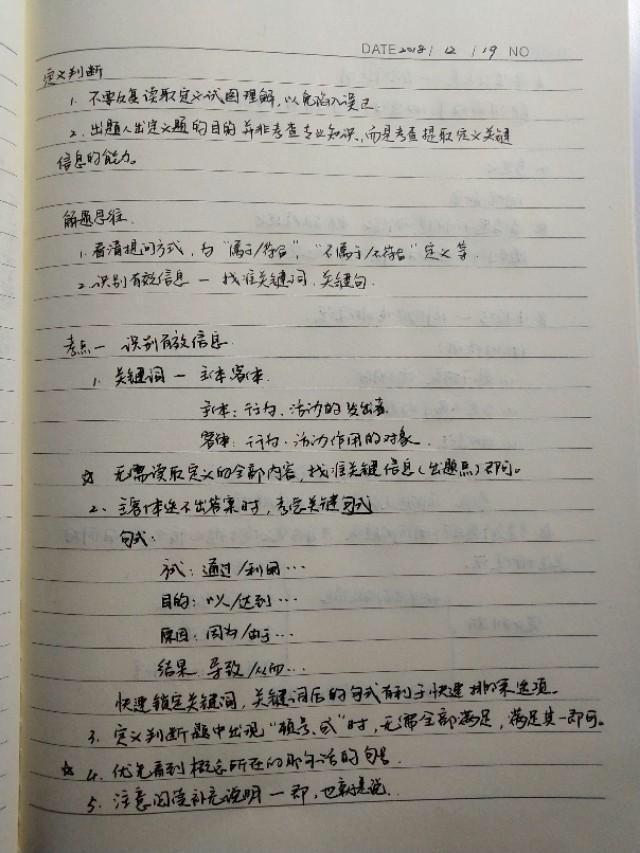 DATE 2018 / 12 / 19 NO
定义判断
1. 不要反复读取定义试图理解,以免陷入误区
2. 出题人出定义题的目的并非考查专业知识,而是考查提取定义关键
信息的能力。
解题思维
1. 看清提问方式,为“属于/符合”,“不属于/不符合”定义等.
2. 识别有效信息 — 找准关键词,关键句.
考点一 识别有效信息
1. 关键词 — 主体客体.
主体:行为、活动的发出者
客体:行为、活动作用的对象.
☆ 无需读取定义的全部内容,找准关键信息(出题点)即可。
2. 主客体选不出答案时,考虑关键句式
句式:
式:通过/利用…
目的:以/达到…
原因:因为/由于…
结果 导致/从而…
快速锁定关键词,关键词后的句式有利于快速排除选项。
3. 定义判断题中出现“顿号、或”时,无需全部满足,满足其一即可。
☆ 4. 优先看到概念所在的那句话的句
5. 注意阅读补充说明 — 即,也就是说.